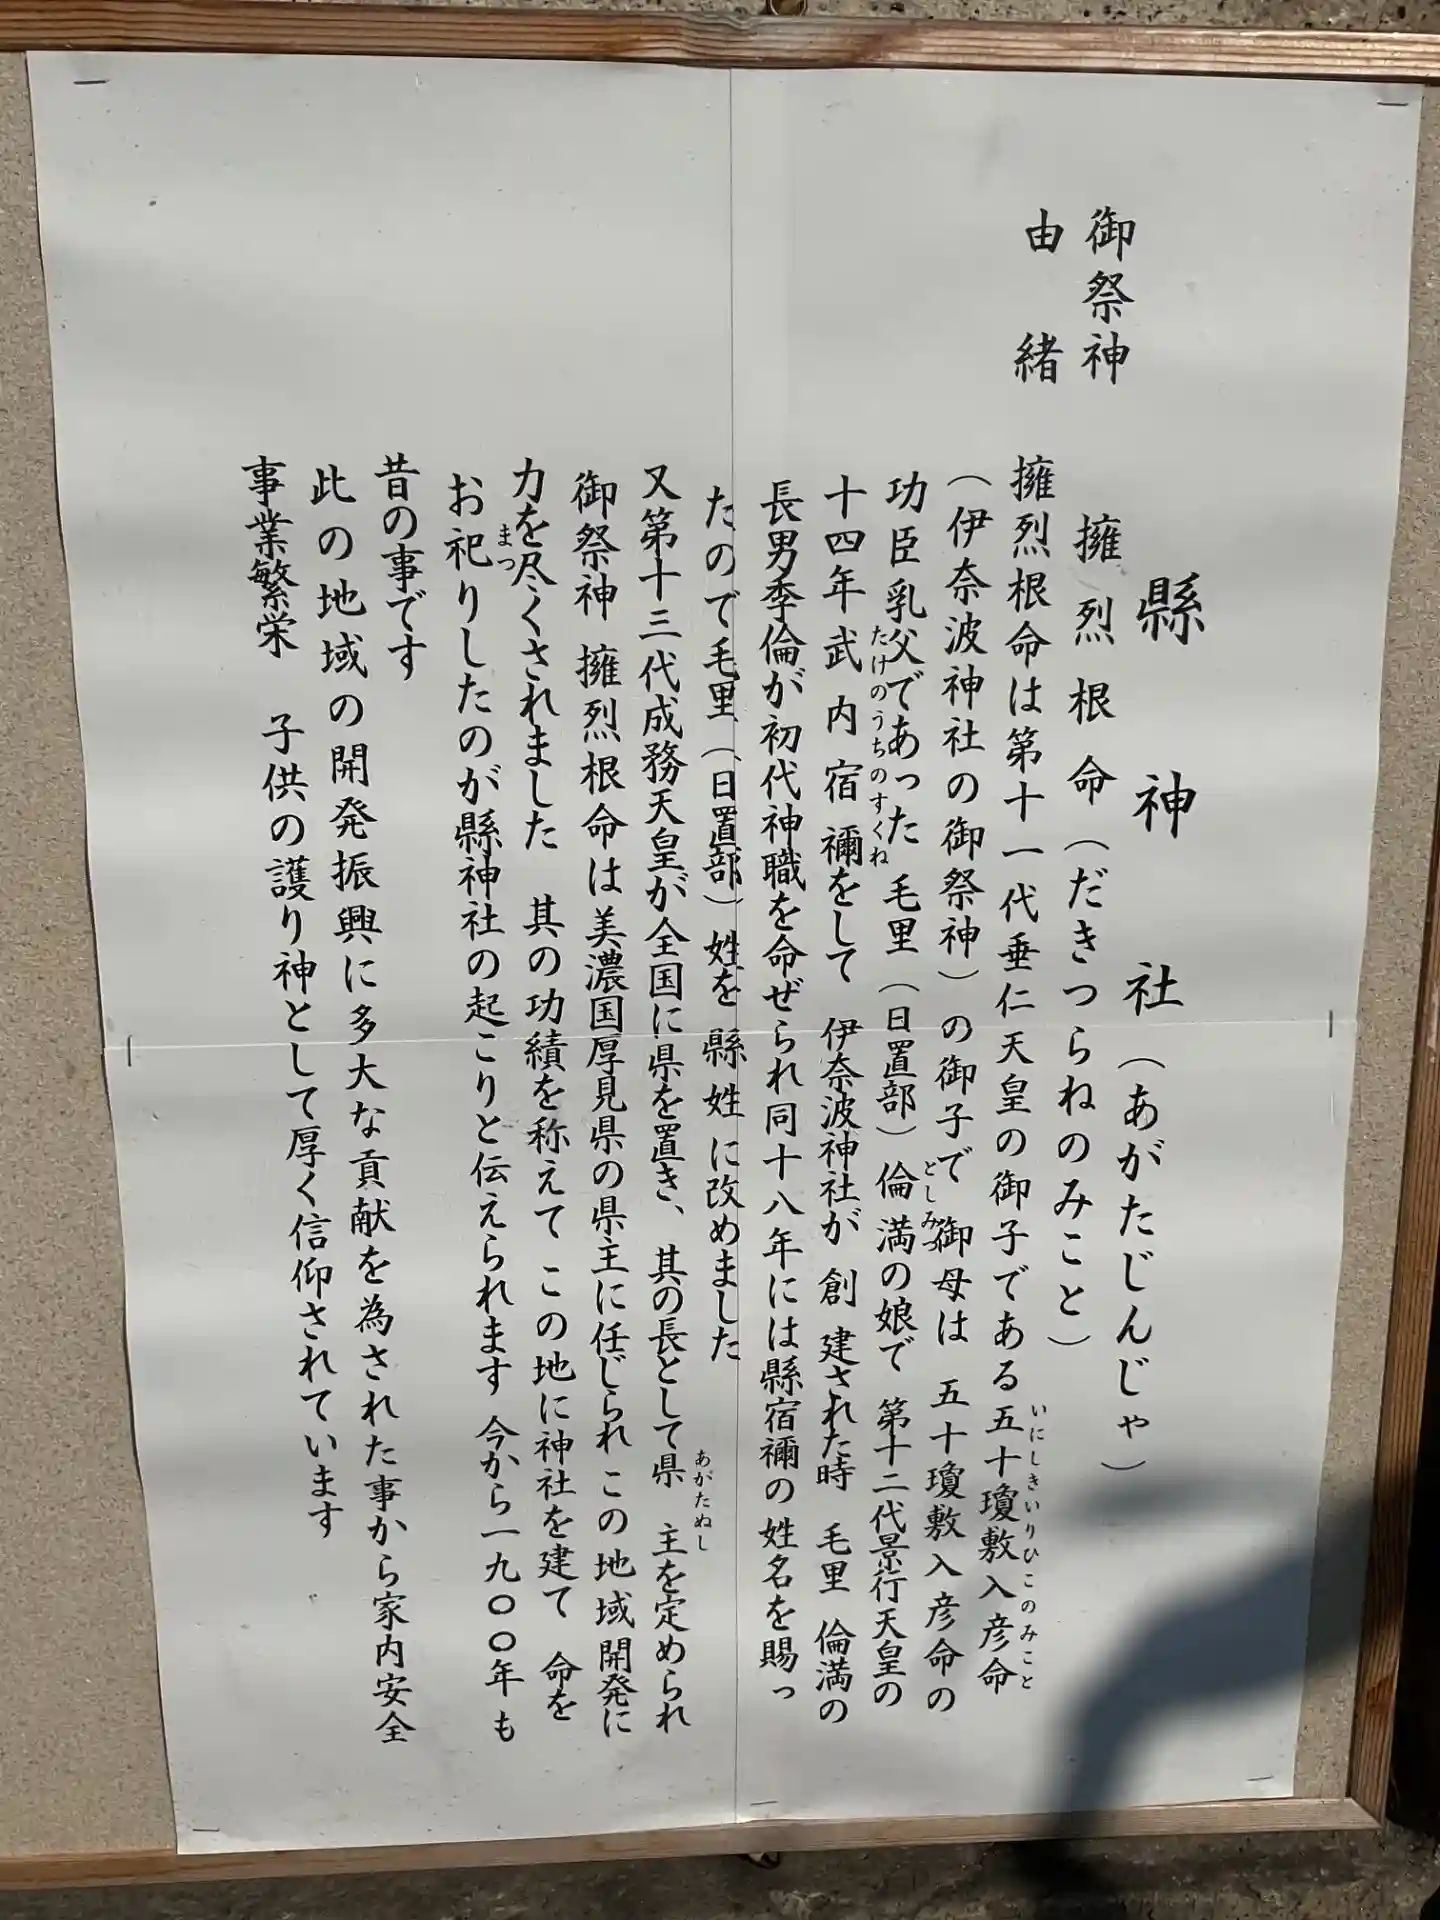 縣神社（あがたじんじゃ）
御祭神　擁烈根命（だきつらねのみこと）
由緒　擁烈根命は第十一代垂仁天皇の御子である五十瓊敷入彦命
いにしきいりひこのみこと
（伊奈波神社の御祭神）の御子で御母は　五十瓊敷入彦命の
功臣乳父であった　毛里（日置部）倫満の娘で　第十二代景行天皇の
としみつ
十四年　武内宿禰をして　伊奈波神社が　創建された時　毛里　倫満の
たけのうちのすくね
長男季倫が初代神職を命ぜられ同十八年には縣宿禰の姓名を賜っ
たので毛里（日置部）姓を　縣姓に改めました
又第十三代成務天皇が全国に県を置き、其の長として県主を定められ
あがたぬし
御祭神　擁烈根命は美濃国厚見県の県主に任じられ　この地域開発に
力を尽くされました　其の功績を称えて　この地に神社を建て　命を
お祀りしたのが縣神社の起こりと伝えられます　今から一九〇〇年も
まつ
昔の事です
此の地域の開発振興に多大な貢献を為された事から家内安全
事業繁栄　子供の護り神として厚く信仰されています